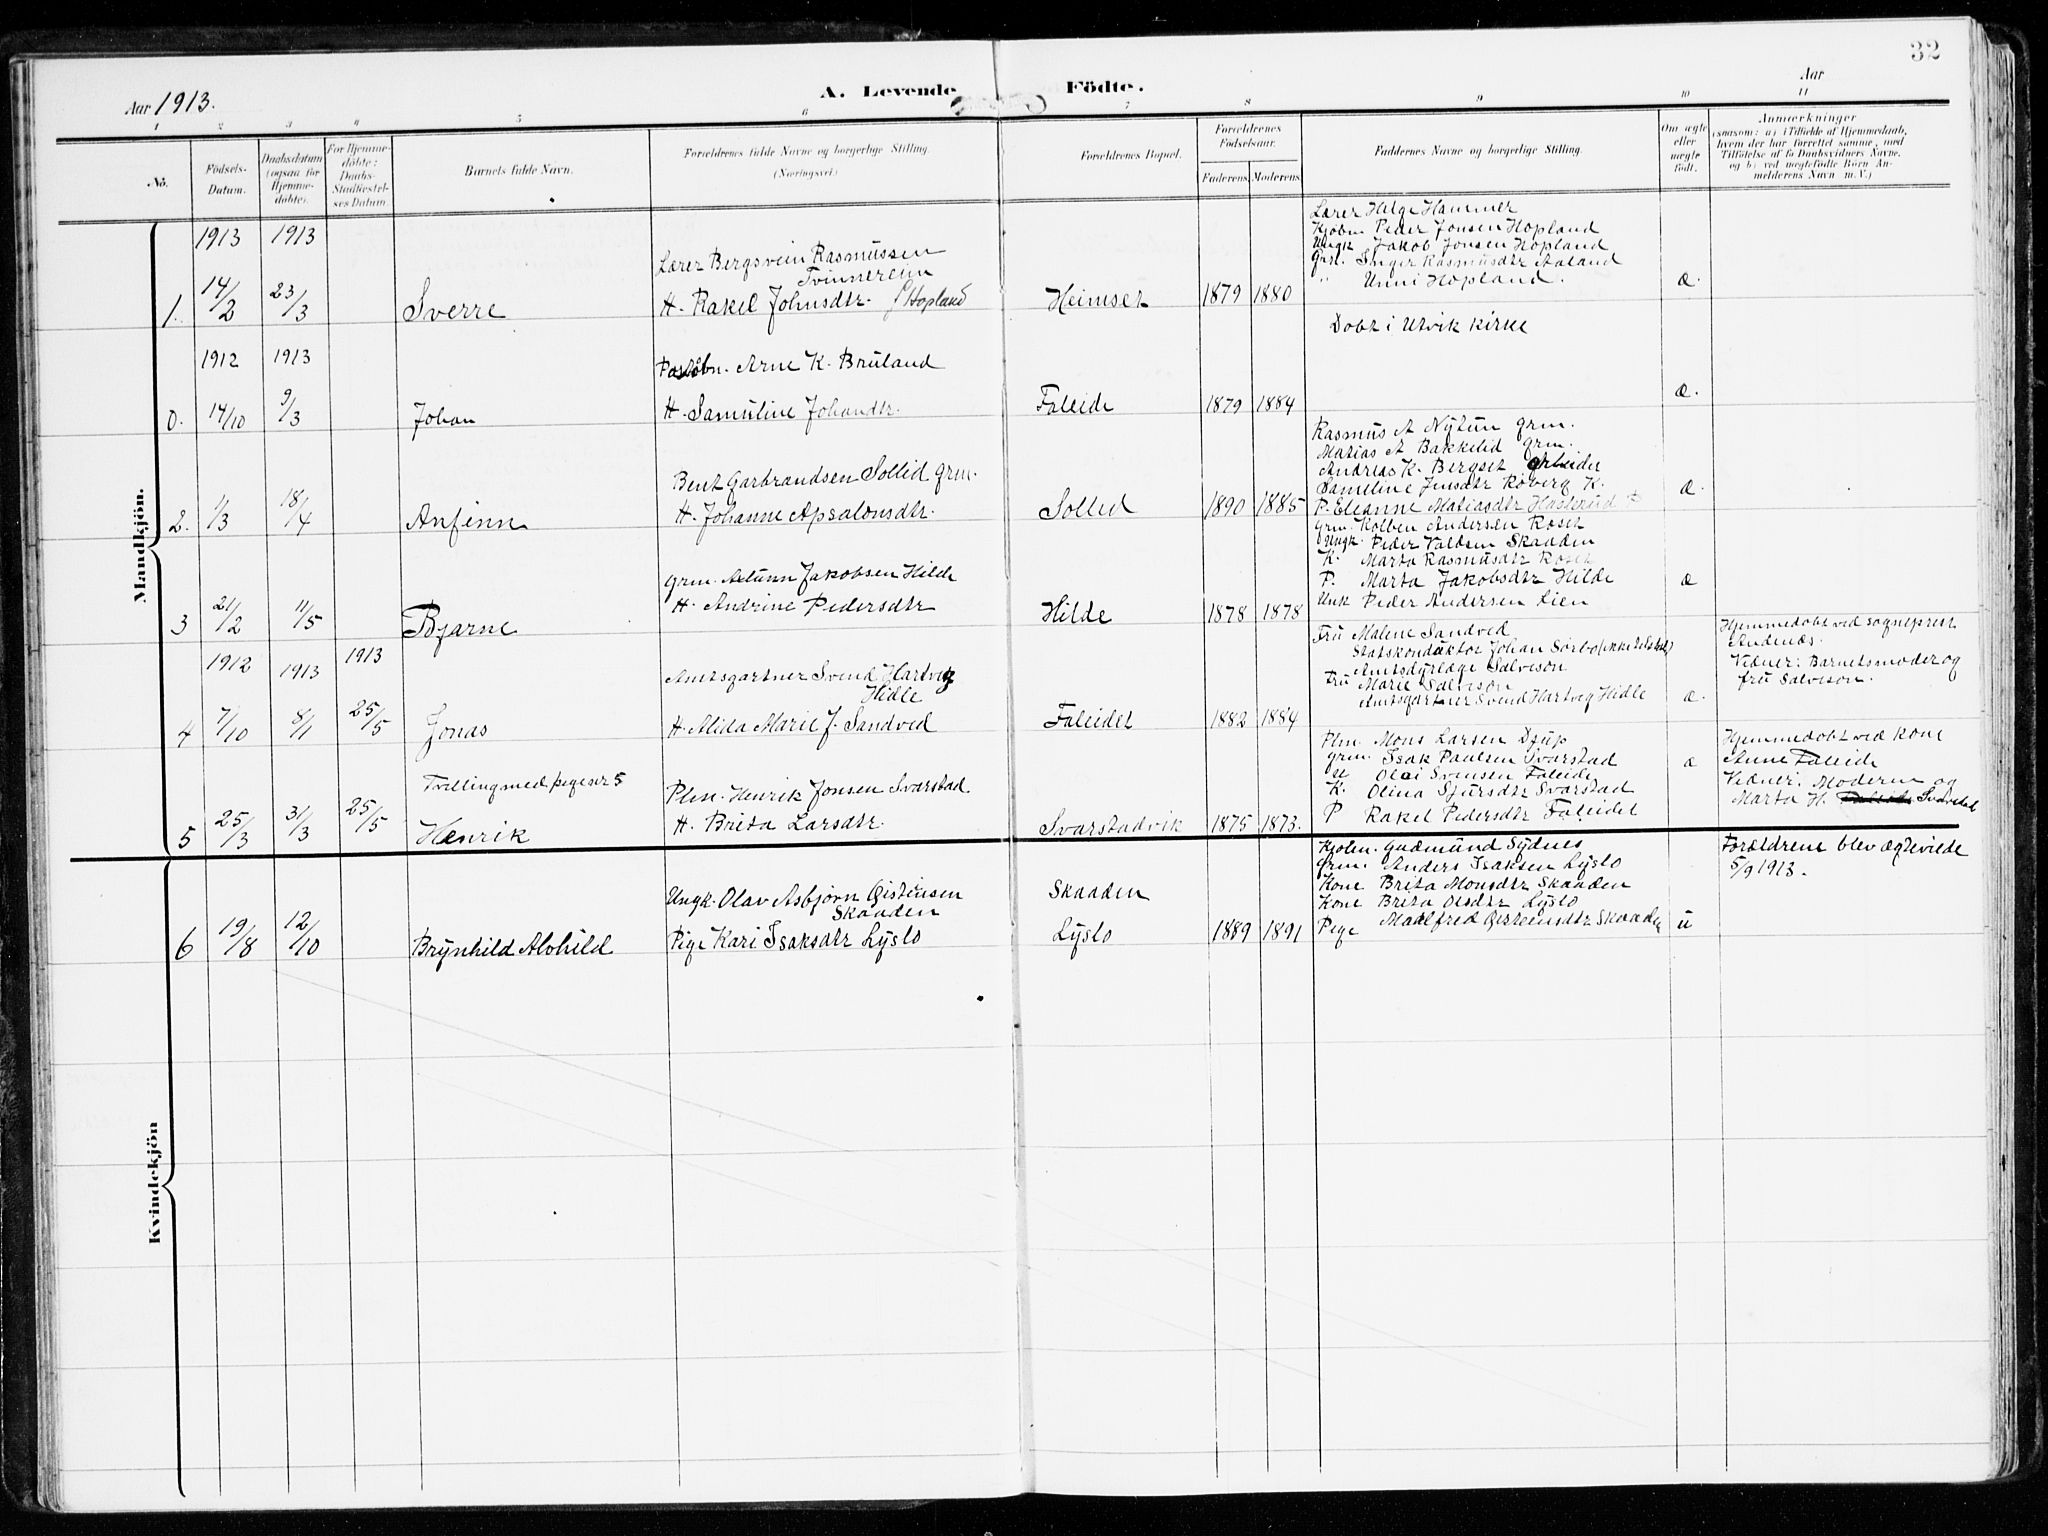 32
Aar 1913.
A. Levende Födte.
Aar
1 2 3 4 5 6 7 8 9 10 11
No.
Födsels-Datum.
Daabsdatum (ogsaa for Hjemme-döbte).
For Hjemme-döbte: Daabs-Stadfæstel-ses Datum.
Barnets fulde Navn.
Forældrenes fulde Navne og borgerlige Stilling. (Næringsvei.)
Forældrenes Bopæl.
Forældrenes Födselsaar.
Faderens Moderens
Faddernes Navne og borgerlige Stilling.
Om ægte eller uægte födt.
Anmærkninger
(saasom: a) i Tilfælde af Hjemmedaab, hvem der har forrettet samme, med Tilföielse af to Daabsvidners Navne, og b) ved uægtefödte Börn An-melderens Navn m. V.)
Mandkjön.
1913 1913
1. 14/2 23/3
Sverre
Lærer Bergsvein Rasmussen
Tvinnereim
H. Rakel Johnsdtr. f Hopland
Heimset
1879 1880
Lærer Helge Hammer
Kjøbm Peder Jonsen Hopland
Ungk Jakob Jonsen Hopland
Grm. Inger Rasmusdtr Aaland
" Unni Hopland.
æ.
1912 1913
0. 14/10 9/3
Johan
Postøbn. Arne K. Bruland
H. Samuline Johandtr.
Faleide
1879 1884
Døbt i Utvik kirke
æ.
2. 1/3 18/4
Anfinn
Bent Garbrandsen Sollid grm.
H. Johanne Apsalonsdtr.
Sollid
1890 1885
Rasmus A Nytun grm.
Matias A Bakkelid grm.
Andreas K. Bergset arbeider
Sameline Jensdtr Roberg K.
P. Eleanne Matiasdtr
æ.
3 21/2 11/5
Bjarne
Grm. Jakobsen Hilde
H. Andrine Pedersdtr
Hilde
1878 1878
Grm. Kolben Andersen Roset
Ungk. Peder Valdsen Skaaden
K. Marta Rasmusdtr Roset
P. Marta Jakobsdtr Hilde
Unk Peder Andersen Lien
æ
1912 1913 1913
4 7/10 8/1 25/5
Jonas
Amtsgartner Svend Hartvig
Hidle
H. Alida Marie J. Sandved
Faleidet
1882 1884
Fru Malene Sandved
Statskonduktor Johan Sørbø
Amtsdyrlæge Salveson
Fru Marie Salveson
Amtsgartner Svend Hartvig Hidle
æ.
Hjemmedøbt ved sogneprest
Andenæs.
Vidner: Barnets moder og
fru Salveson.
Tvilling med pige nr 5
5 25/3 31/3 25/5
Henrik
Plm. Henrik Jonsen Svarstad
H. Brita Larsdtr.
Svarstadvik
1875 1873.
Plm. Mons Larsen Djup
Grm. Isak Paulsen Svarstad
u Olai Svensen Faleide
K. Olina Sjursdtr Svarstad
P Rakel Pedersdtr Faleidet
æ
Hjemmedøbt ved kone
Anne Faleide
Vidner: Moderen og
Marta H.
Kvindekjön
6 19/8 12/10
Brynhild Alvhild
Ungk. Olav Asbjørn Gisteinsen
Skaaden
Pige Kari Isaksdtr Lyslo
Skaaden
Lyslo
1889 1891
Kjøbm. Gudmund Sydnes
Grm. Anders Isaksen Lyslo
Kone Brita Monsdtr Skaaden
Kone Brita Olsdtr Lyslo
Pige Maalfred Gisteinsdtr Skaaden
u
Forældrene blev ægteviede
5/9 1913.